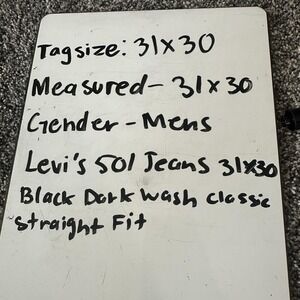 Tagsize: 31x30
Measured- 31x30
Gender-Mens
Levi's 501 Jeans 31x30
Black Dark Wash classic
straight Fit